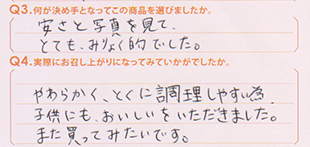 Q3.何が決め手となってこの商品を選びましたか。
安さと写真を見て、
とても、みりょく的でした。
Q4.実際にお召し上がりになってみていかがでしたか。
やわらかく、とくに調理しやすい為
子供にも、おいしいをいただきました。
また買ってみたいです。